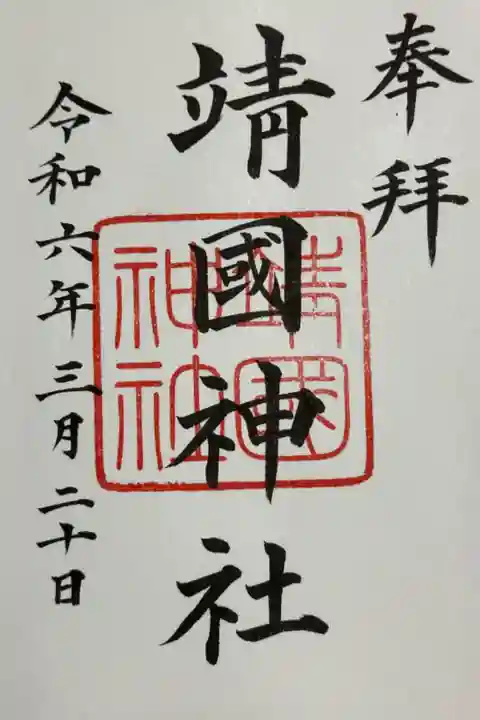 奉拝
靖國神社
靖國
神社
令和六年三月二十日